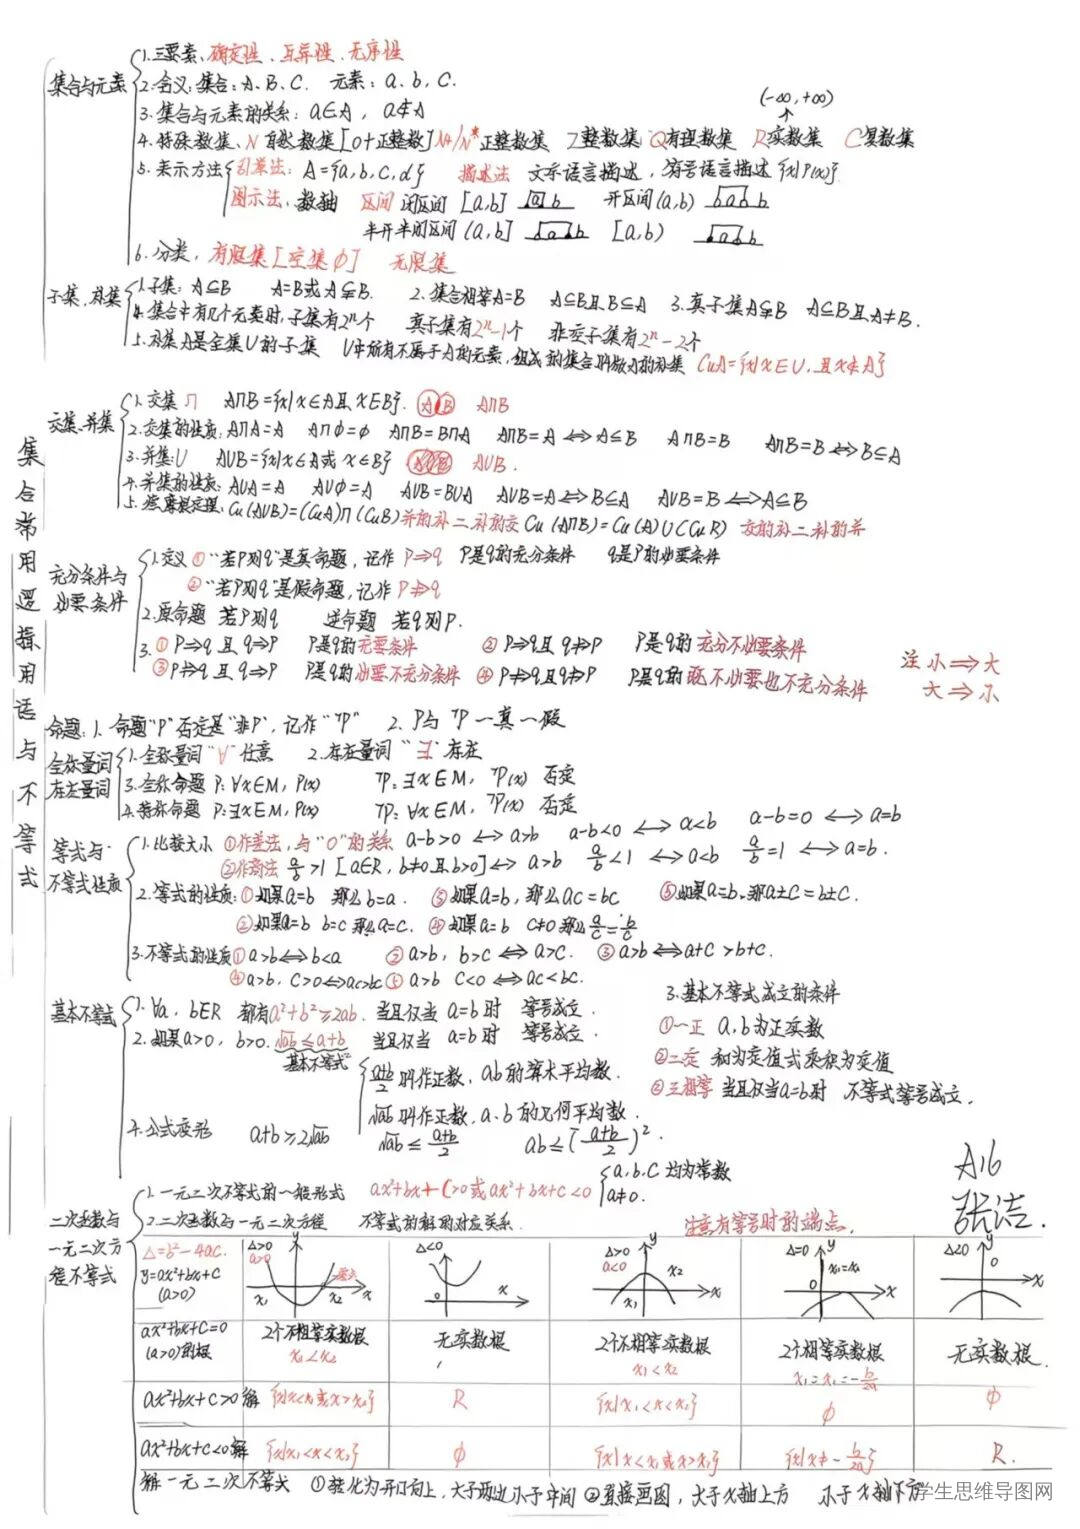 集合常用逻辑用语与不等式
集合与元素
1.三要素、确定性、互异性、无序性
2.含义:集合:A、B、C. 元素:a、b、C.
3.集合与元素的关系:a∈A, a∉A
(-∞,+∞)
4.特殊数集、N自然数集[0+正整数]N+/N*正整数集 Z整数集 Q有理数集 R实数集 C复数集
5.表示方法 列举法:A={a,b,c,d} 描述法 文字语言描述,符号语言描述{x|P(x)}
图示法、数轴 区间 闭区间[a,b] a b 开区间(a,b) a b
半开半闭区间(a,b] a b [a,b) a b
6.分类,有限集[空集∅] 无限集
子集,补集
1.子集:A⊆B A=B或A⫋B. 2.集合相等A=B A⊆B且B⊆A 3.真子集A⫋B A⊆B且A≠B.
4.集合中有几个元素时,子集有2ⁿ个 真子集有2ⁿ-1个 非空子集有2ⁿ-2个
5.补集A是全集U的子集 U中所有不属于A的元素,组成的集合叫做A的补集 CuA={x|x∈U,且x∉A}
交集、并集
1.交集∩ A∩B={x|x∈A且x∈B}. A B A∩B
2.交集的性质:A∩A=A A∩∅=∅ A∩B=B∩A A∩B=A⟺A⊆B A∩B=B A∩B=B⟺B⊆A
3.并集:U A∪B={x|x∈A或x∈B} A∪B.
4.并集的性质:A∪A=A A∪∅=A A∪B=B∪A A∪B=A⟺B⊆A A∪B=B⟺A⊆B
5.德摩根定理,Cu(A∪B)=(CuA)∩(CuB)并的补=补的交 Cu(A∩B)=Cu(A)∪(CuB) 交的补=补的并
充分条件与必要条件
1.定义 ①“若P则q”是真命题,记作P⇒q P是q的充分条件 q是P的必要条件
②“若P则q”是假命题,记作P⇏q
2.原命题 若P则q 逆命题 若q则P.
3.①P⇒q且q⇒P P是q的充要条件 ②P⇒q且q⇏P P是q的充分不必要条件
③P⇏q且q⇒P P是q的必要不充分条件 ④P⇏q且q⇏P P是q的既不必要也不充分条件
注 小⇒大
大⇒小
命题:1.命题“P”否定是“非P”,记作“¬P” 2.P与¬P一真一假
全称量词
存在量词
1.全称量词“∀”任意 2.存在量词“∃”存在
3.全称命题P:∀x∈M,P(x) ¬P:∃x∈M,¬P(x) 否定
4.特称命题P:∃x∈M,P(x) ¬P:∀x∈M,¬P(x) 否定
等式与·不等式性质
1.比较大小 ①作差法,与“0”的关系 a-b>0⟺a>b a-b<0⟺a<b a-b=0⟺a=b
②作商法 a/b>1 [a∈R,b≠0且b>0]⟺a>b a/b<1⟺a<b a/b=1⟺a=b.
2.等式的性质:①如果a=b 那么b=a. ③如果a=b,那么ac=bc ⑤如果a=b,那a±C=b±C.
②如果a=b b=c那么a=c. ④如果a=b C≠0那么a/c=b/c
3.不等式的性质①a>b⟺b<a ②a>b,b>c⟺a>C. ③a>b⟺a+C>b+c.
④a>b,C>0⟺ac>bc ⑤a>b C<0⟺ac<bc.
基本不等式
1.∀a,b∈R 都有a²+b²≥2ab.当且仅当 a=b时 等号成立.
2.如果a>0,b>0.√ab≤a+b/2 当且仅当 a=b时 等号成立.
基本不等式
a+b/2叫作正数,ab的算术平均数.
√ab叫作正数,a、b的几何平均数.
3.基本不等式成立的条件
①一正 a,b为正实数
②二定 和为定值或乘积为定值
③三相等 当且仅当a=b时 不等式等号成立.
4.公式变形 a+b≥2√ab √ab≤a+b/2 ab≤(a+b/2)².
A16
张洁.
二次函数与一元二次方程不等式
1.一元二次不等式的一般形式 ax²+bx+C>0或ax²+bx+c<0 a,b,C均为常数
a≠0.
2.二次函数与一元二次方程 不等式的解的对应关系. 注意有等号时的端点.
Δ=b²-4ac. y=ax²+bx+C (a>0)
Δ>0 a>0 y x₁ x₂ x 端点
Δ<0 0 x
Δ>0 a<0 y x₁ x₂ x
Δ=0 y x₁=x₂ 0 x
Δ<0 y 0 x
ax²+bx+C=0 (a>0)的根 2个不相等实数根 x₁<x₂ 无实数根 2个不相等实数根 x₁<x₂ 2个相等实数根 x₁=x₁=-b/2a 无实数根.
ax²+bx+C>0解 {x|x<x₁或x>x₂} R {x|x₁<x<x₂} ∅ ∅
ax²+bx+C<0解 {x|x₁<x<x₂} ∅ {x|x<x₁或x>x₂} {x|x≠-b/2a} R.
解一元二次不等式 ①转化为开口向上,大于两边小于中间 ②直接画图,大于x轴上方 小于x轴下方
学生思维导图网